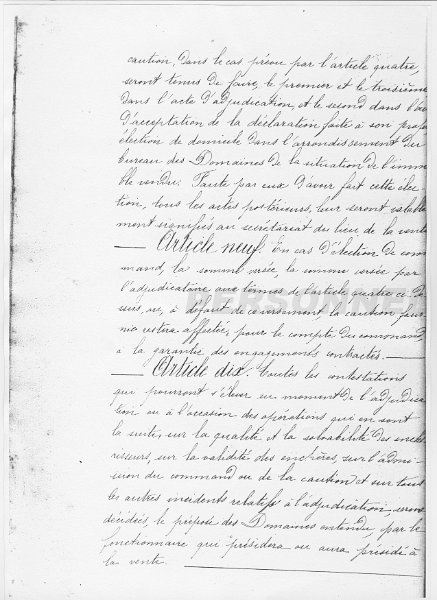 caution, dans le cas prévu par l'article quatre,
seront tenus de faire, le premier et le troisième
dans l'acte d'adjudication, et le second dans l'ac
d'acceptation de la déclaration faite à son profit
élection de domicile dans l'arrondissement du
bureau des Domaines de la situation de l'immeu
ble vendu. Faute par eux d'avoir fait cette élec
tion, tous les actes postérieurs, leur seront valable
ment signifiés au secrétariat du lieu de la vente
Article neuf. En cas d'élection de com
mand, la somme versée par
l'adjudicataire aux termes de l'article quatre ci-des
sus, ou, à défaut de versement la caution four
nie restera affectée, pour le compte du command
à la garantie des engagements contractés.
Article dix. Toutes les contestations
qui pourront s'élever au moment de l'adjudica
tion ou à l'occasion des opérations qui en sont
la suite, sur la qualité et la solvabilité des enché
risseurs, sur la validité des enchères, sur l'admis
sion du command ou de la caution et sur tous
les autres incidents relatifs à l'adjudication, seront
décidées, le préposé des Domaines entendu, par le
fonctionnaire qui présidera ou aura présidé à
la vente.